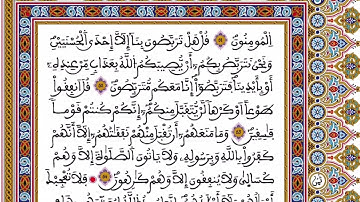 اَ۬لْمُومِنُونَۖ قُلْ هَلْ تَرَبَّصُونَ بِنَآ إِلَّآ إِحْدَى اَ۬لْحُسْنَيَيْنِ
وَنَحْنُ نَتَرَبَّصُ بِكُمُۥٓ أَنْ يُّصِيبَكُمُ اُ۬للَّهُ بِعَذَابٖ مِّنْ عِندِهِۦٓ
أَوْ بِأَيْدِينَا فَتَرَبَّصُوٓاْ إِنَّا مَعَكُم مُّتَرَبِّصُونَۖ قُلَ اَنفِقُواْ
طَوْعاً اَوْ كَرْهاٗ لَّنْ يُّتَقَبَّلَ مِنكُمُۥٓ إِنَّكُمْ كُنتُمْ قَوْماٗ
فَٰسِقِينَۖ وَمَا مَنَعَهُمُۥٓ أَن تُقْبَلَ مِنْهُمْ نَفَقَٰتُهُمُۥٓ إِلَّآ أَنَّهُمْ
كَفَرُواْ بِاللَّهِ وَبِرَسُولِهِۦ وَلَا يَاتُونَ اَ۬لصَّلَوٰةَ إِلَّا وَهُمْ
كُسَالَىٰ وَلَا يُنفِقُونَ إِلَّا وَهُمْ كَٰرِهُونَۖ فَلَا تُعْجِبْكَ